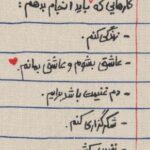 کارهایی که باید انجام بدهم :
- زندگی کنم.
- عاشق بشوم و عاشق بمانم.
- دم غنیمت باشد برایم.
- شکرگزاری کنم.